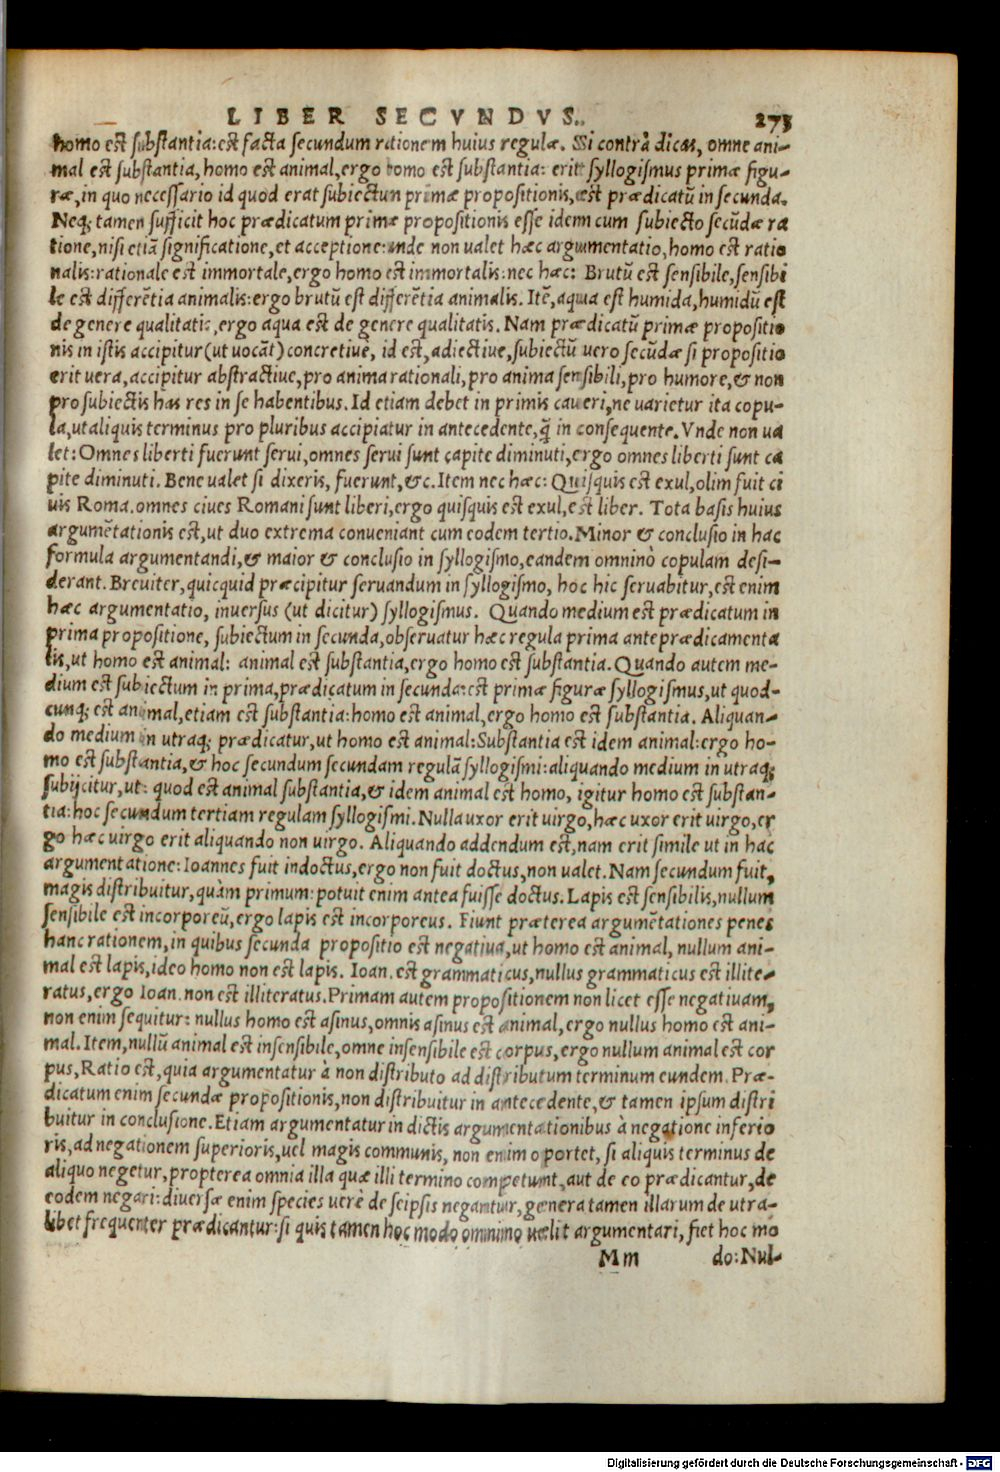 LIBER SECVNDVS. 273
homo est substantia: est facta secundum rationem huius regulæ. Si contrà dicas, omne ani-
mal est substantia, homo est animal, ergo homo est substantia: erit syllogismus primæ figu-
ræ, in quo necessario id quod erat subiectum primæ propositionis, est prædicatũ in secunda.
Neq; tamen sufficit hoc prædicatum primæ propositionis esse idem cum subiecto secũdæ ra
tione, nisi etiã significatione, et acceptione: unde non ualet hæc argumentatio, homo est ratio
nalis: rationale est immortale, ergo homo est immortalis: nec hæc: Brutũ est sensibile, sensibi
le est differẽtia animalis: ergo brutũ est differẽtia animalis. Itẽ, aqua est humida, humidũ est
de genere qualitatis, ergo aqua est de genere qualitatis. Nam prædicatũ primæ propositio
nis in istis accipitur (ut uocãt) concretiuè, id est, adiectiue, subiectũ uero secũdæ si propositio
erit uera, accipitur abstractiue, pro anima rationali, pro anima sensibili, pro humore, & non
pro subiectis has res in se habentibus. Id etiam debet in primis caueri, ne varietur ita copu-
la, ut aliquis terminus pro pluribus accipiatur in antecedente, q̃ in consequente. Vnde non ua
let: Omnes liberti fuerunt serui, omnes serui sunt capite diminuti, ergo omnes liberti sunt ca
pite diminuti. Bene ualet si dixeris, fuerunt, &c. Item nec hæc: Quisquis est exul, olim fuit ci
uis Roma. omnes ciues Romani sunt liberi, ergo quisquis est exul, est liber. Tota basis huius
argumẽtationis est, ut duo extrema conueniant cum eodem tertio. Minor & conclusio in hac
formula argumentandi, & maior & conclusio in syllogismo, eandem omninò copulam desi-
derant. Breuiter, quicquid præcipitur seruandum in syllogismo, hoc hic seruabitur, est enim
hæc argumentatio, inuersus (ut dicitur) syllogismus. Quando medium est prædicatum in
prima propositione, subiectum in secunda, obseruatur hæc regula prima anteprædicamenta
lis, ut homo est animal: animal est substantia, ergo homo est substantia. Quando autem me-
dium est subiectum in prima, prædicatum in secunda: est primæ figuræ syllogismus, ut quod-
cunq; est animal, etiam est substantia: homo est animal, ergo homo est substantia. Aliquan-
do medium in utraq; prædicatur, ut homo est animal: Substantia est idem animal: ergo ho-
mo est substantia, & hoc secundum secundam regulã syllogismi: aliquando medium in utraq;
subijcitur, ut: quod est animal substantia, & idem animal est homo, igitur homo est substan-
tia: hoc secundum tertiam regulam syllogismi. Nulla uxor erit virgo, hæc uxor erit virgo, er
go hæc virgo erit aliquando non virgo. Aliquando addendum est, nam erit simile ut in hac
argumentatione: Ioannes fuit indoctus, ergo non fuit doctus, non ualet. Nam secundum fuit,
magis distribuitur, quàm primum: potuit enim antea fuisse doctus. Lapis est sensibilis, nullum
sensibile est incorporeũ, ergo lapis est incorporeus. Fiunt præterea argumẽtationes penes
hanc rationem, in quibus secunda propositio est negatiua, ut homo est animal, nullum ani-
mal est lapis, ideo homo non est lapis. Ioan. est grammaticus, nullus grammaticus est illite-
ratus, ergo Ioan. non est illiteratus. Primam autem propositionem non licet esse negatiuam,
non enim sequitur: nullus homo est asinus, omnis asinus est animal, ergo nullus homo est ani-
mal. Item, nullũ animal est insensibile, omne insensibile est corpus, ergo nullum animal est cor
pus, Ratio est, quia argumentatur à non distributo ad distributum terminum eundem. Præ-
dicatum enim secundæ propositionis, non distribuitur in antecedente, & tamen ipsum distri
buitur in conclusione. Etiam argumentatur in dictis argumentationibus à negatione inferio
ris, ad negationem superioris, uel magis communis, non enim oportet, si aliquis terminus de
aliquo negetur, propterea omnia illa quæ illi termino competunt, aut de eo prædicantur, de
eodem negari: diuersæ enim species uerè de seipsis negantur, genera tamen illarum de utra-
libet frequenter prædicantur: si quis tamen hoc modo omnino uelit argumentari, fiet hoc mo
Mm do: Nul-
Digitalisierung gefördert durch die Deutsche Forschungsgemeinschaft - DFG